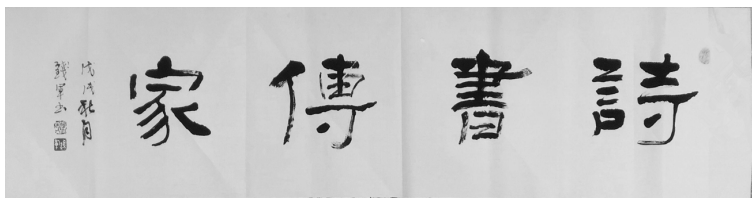 詩書傳家
戊戌秋月